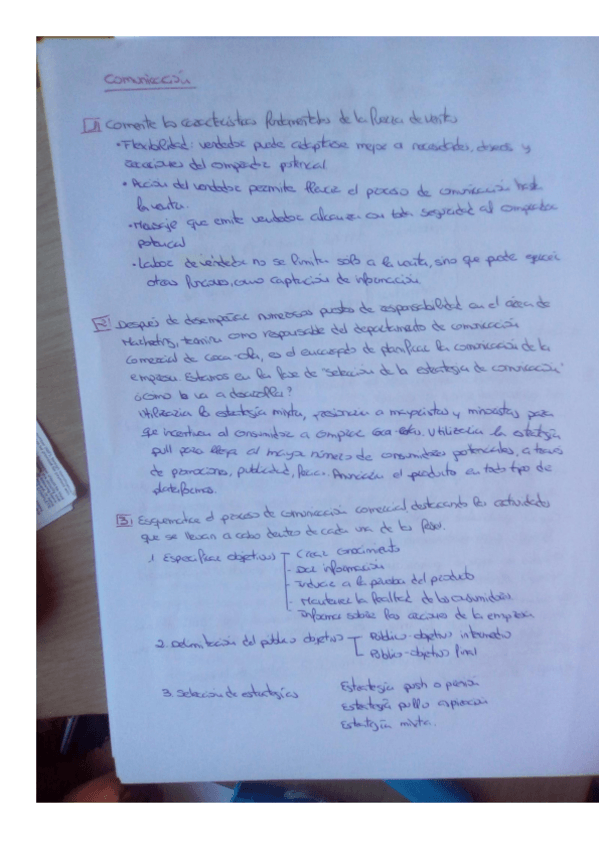 Comunicación
1) Comente las características fundamentales de la fuerza de ventas
• Flexibilidad: vendedor puede adaptarse mejor a necesidades, deseos y
reacciones del comprador potencial
• Acción del vendedor permite llevar el proceso de comunicación hasta
la venta.
• Mensaje que emite vendedor alcanza con total seguridad al comprador
potencial
• Labor de vendedor no se limita solo a la venta, sino que puede ejercer
otras funciones, como captación de información
2) Después de desempeñar numerosos puestos de responsabilidad en el área de
Marketing, termina como responsable del departamento de comunicación
comercial de coca-cola, es el encargado de planificar la comunicación de la
empresa. Estamos en la fase de "selección de la estrategia de comunicación"
¿cómo la va a desarrollar?
Utilizaría la estrategia mixta, a mayoristas y minoristas para
que incentiven al consumidor a comprar coca-cola. Utilizaría la estrategia
pull para llegar al mayor número de consumidores potenciales, a través
de promociones, publicidad, Anunciar el producto en todo tipo de
plataformas.
3) Esquematice el proceso de comunicación comercial destacando las actividades
que se llevan a cabo dentro de cada una de las fases.
1. Especificar objetivos - Crear conocimiento
- Dar información
- Inducir a la prueba del producto
- Mantener la fealtad de los consumidores
- Informar sobre las acciones de la empresa
2. Delimitación del público objetivo - Público-objetivo intermedio
- Público-objetivo final
3. Selección de estrategias Estrategia push o presión
Estrategia pull o aspiración
Estrategia mixta.